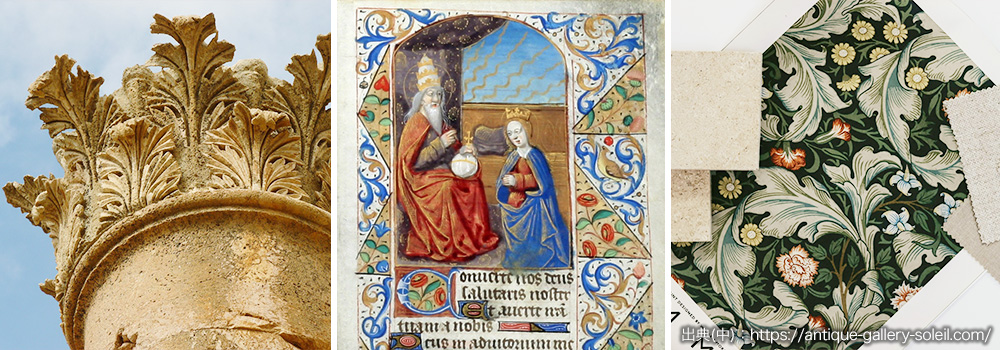 Conuerte nos deus
salutaris noster
Et auerte iram
tuam a nobis
Deus in adiutorium me
出典(中)：https://antique-gallery-soleil.com/